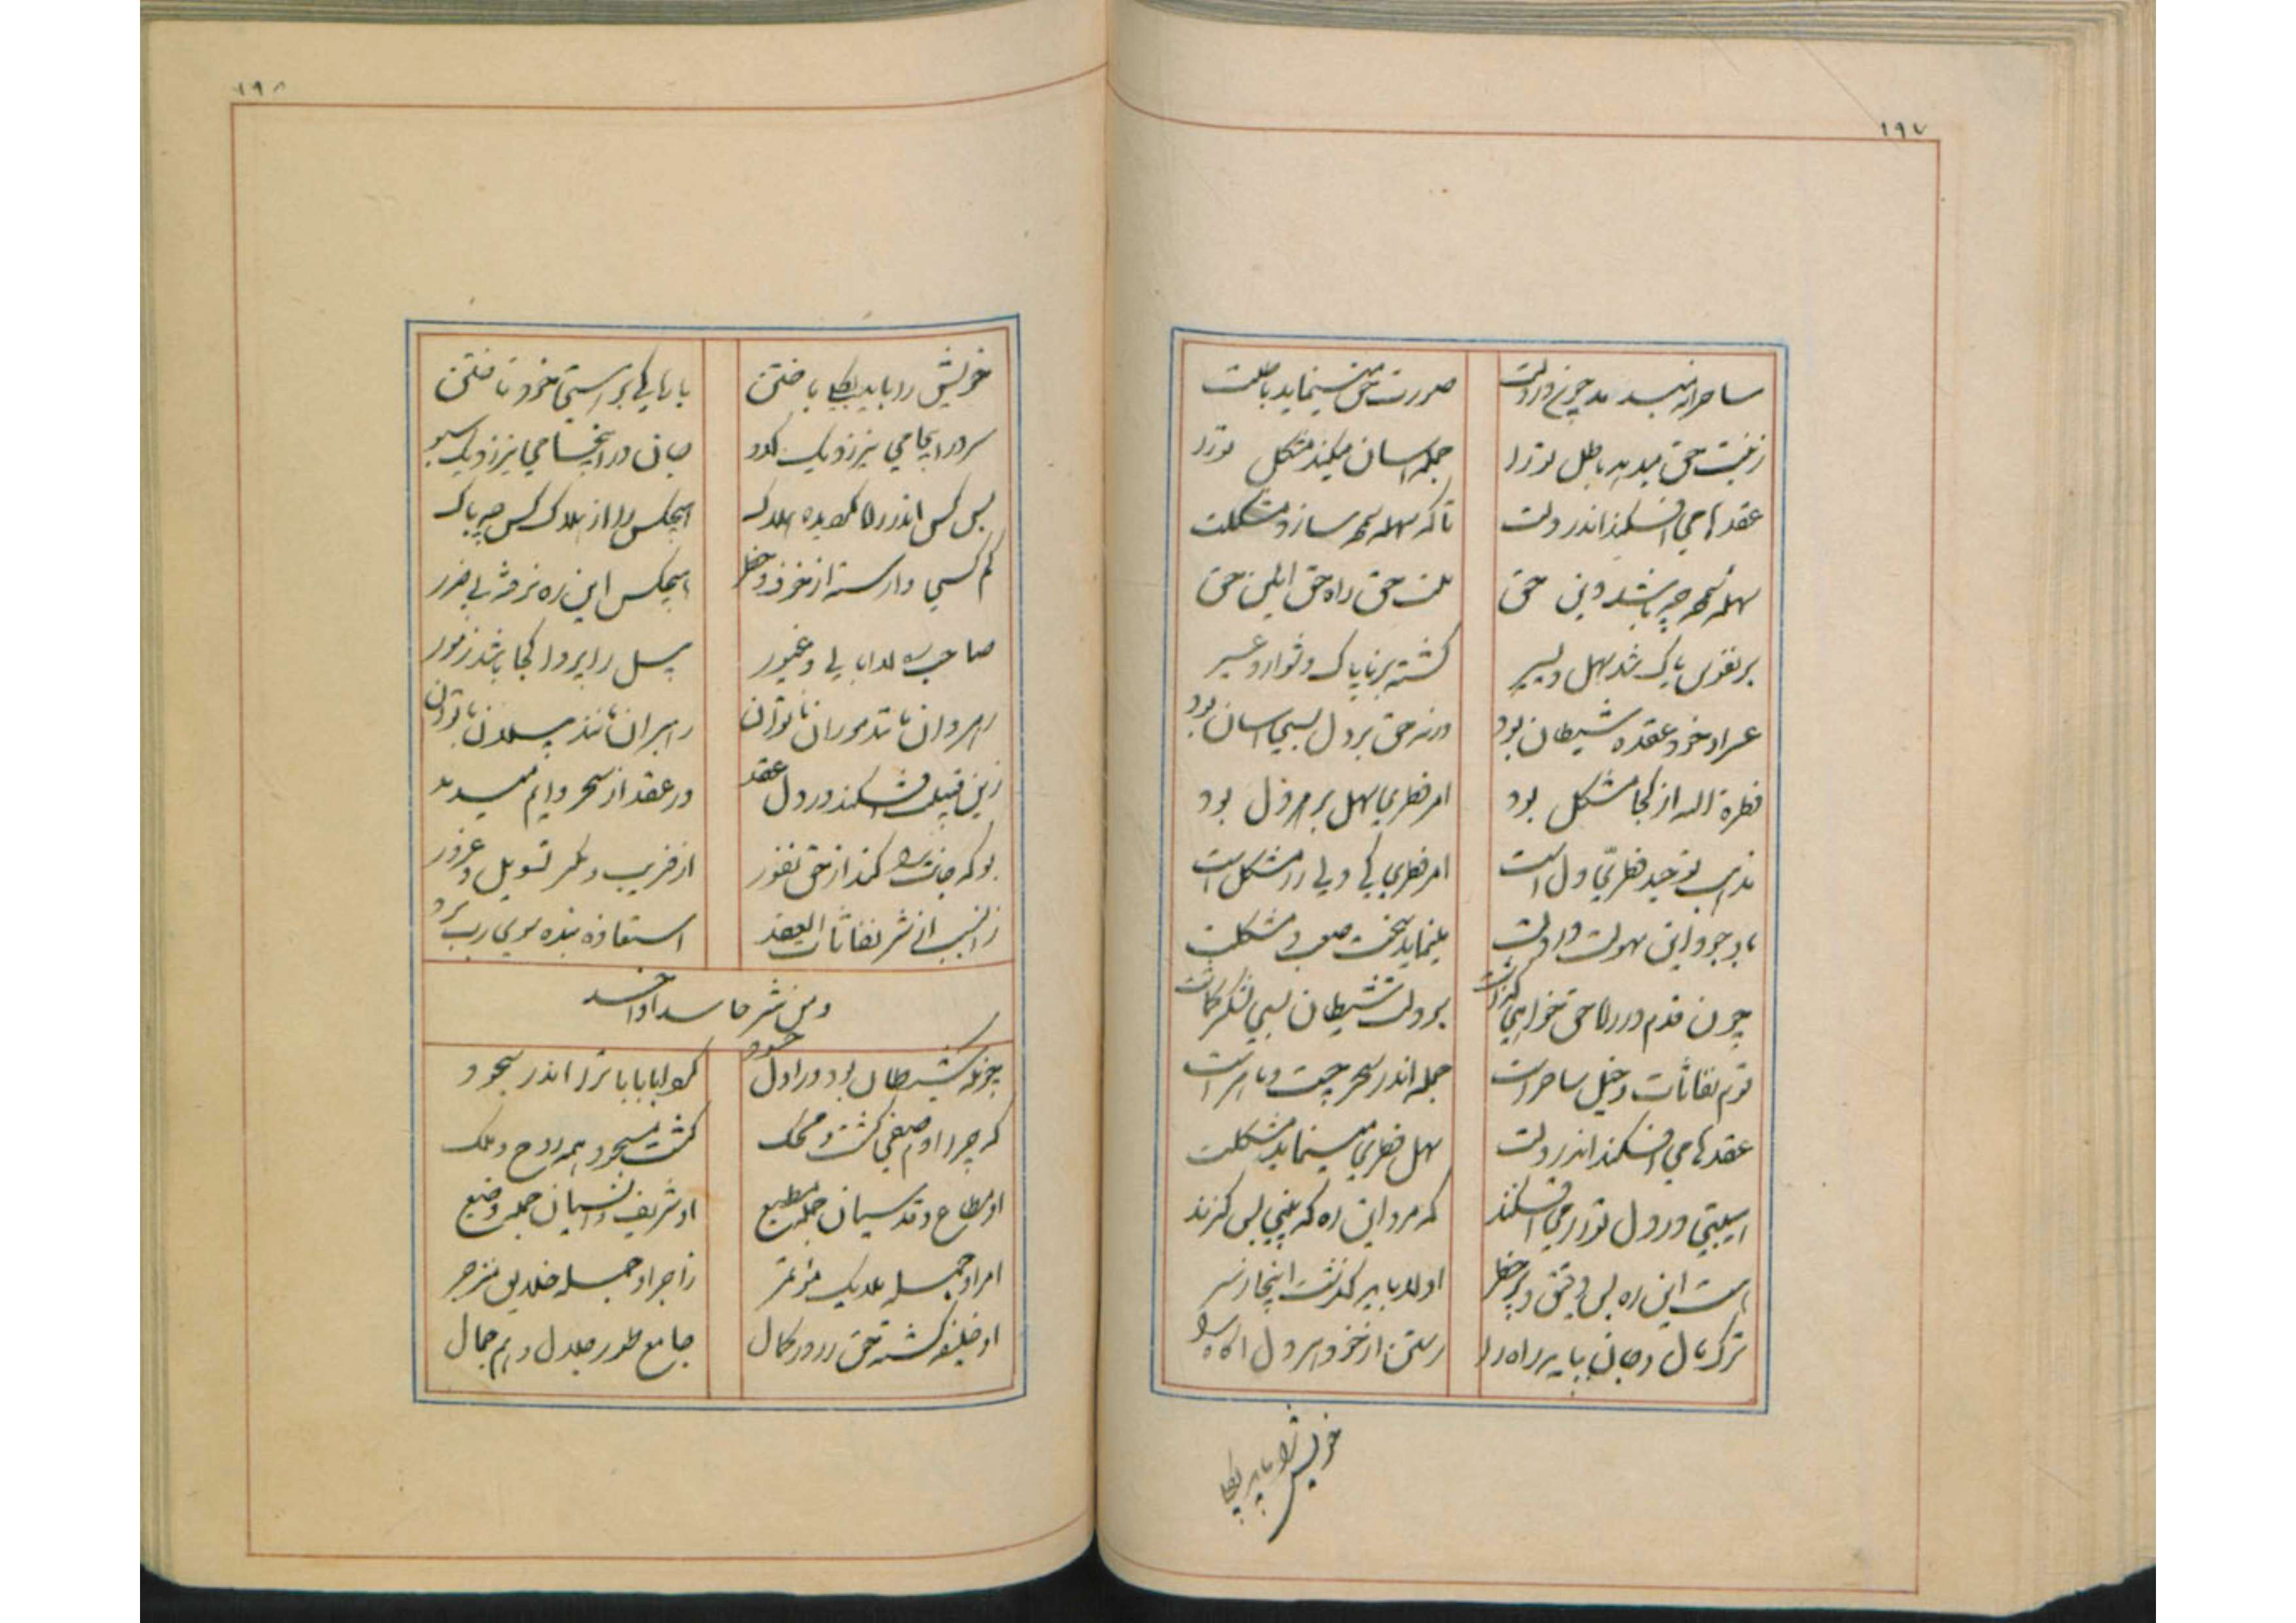 ۱۹۷
ساحرانه میدمد چون در دلت
صورت حق مینماید باطلت
زینت حق میدهد باطل تو را
جمله آسان میکند مشکل تو را
عقدها می افکند اندر دلت
تا که سهله سمحه سازد مشکلت
سهله سمحه چه باشد دین حق
ملت حق راه حق حق
بر نفوس پاک شد سهل و یسیر
گشته بر ناپاک دشوار و عسیر
عسر او خود عقده شیطان بود
ورنه حق بر دل بسی آسان بود
فطرة الله از کجا مشکل بود
امر فطری سهل بر هر دل بود
مذهب توحید فطری دل است
امر فطری کی ولی را مشکل است
با وجود این سهولت در دلت
مینماید سخت صعب و مشکلت
چون قدم در راه حق خواهی گذاشت
بر دلت شیطان بسی لشکر گماشت
قوم نفاثات و خیل ساحر است
جمله اندر سحر چست و ماهر است
عقدها می افکند اندر دلت
سهل فطری مینماید مشکلت
هیبتی در دل تو را می افکند
که مرو این ره که بینی بس گزند
هست این ره بس دقیق و پر خطر
اولا باید گذشت اینجا ز سر
ترک مال و جان بباید راه را
رستن از خود هر دل آگاه را
خویش را باید بکلی
۱۹۸
خویش را باید بکلی باختن
با بلای نیستی خود تاختن
سر در اینجا می نیرزد یک کدو
جان در اینجا می نیرزد یک سبو
بس کس اندر راه گردیده هلاک
هیچکس را از هلاک کس چه باک
کم کسی وارسته از خوف و خطر
هیچکس این ره نرفته بی ضرر
صاحب ره لاابالی و غیور
پیل را پروا کجا باشد ز مور
رهروان مانند موران ناتوان
رهبران مانند پیلان
زین قبیل افکند در دل عقد
در عقد از سحر دایم میدمد
بو که جانت را کند از حق نفور
از فریب و مکر تسویل و غرور
زین سبب از شر نفاثات العقد
استعاذه بنده سوی رب برد
و من شر حاسد اذا حسد
چونکه شیطان بود در اول حسود
کو لبابا ترا اندر سجود
که چرا آدم صفی گشت و محک
گشت مسجود همه روح و ملک
او مطاع و قدسیان جمله مطیع
او شریف و انسیان جمله وضیع
امر او جمله ملایک مؤتمر
زاجر او جمله خلایق منزجر
او خلیفه گشته حق را در کمال
جامع طور جلال و هم جمال